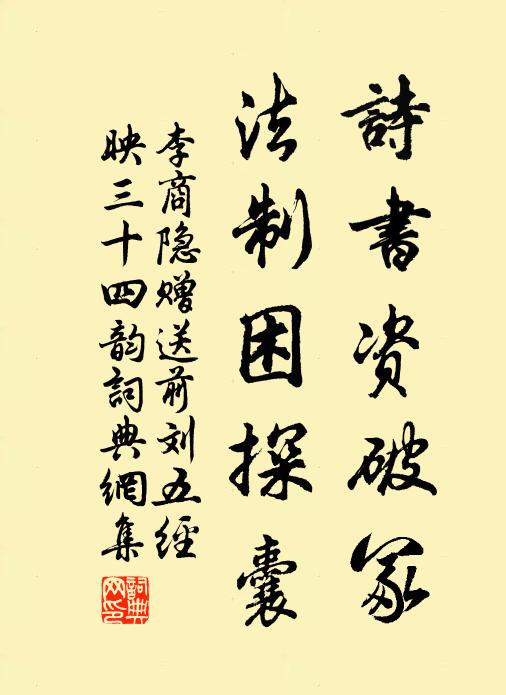 詩書资破冢
法制困探囊
李商隐赠送前刘五經
映三十四韵詞典網集
詞典網印